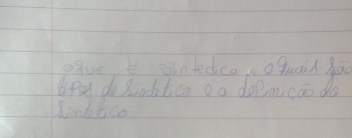 oque é sintedico, e quais são
tipos de sintetico e a definicão de
sintetico